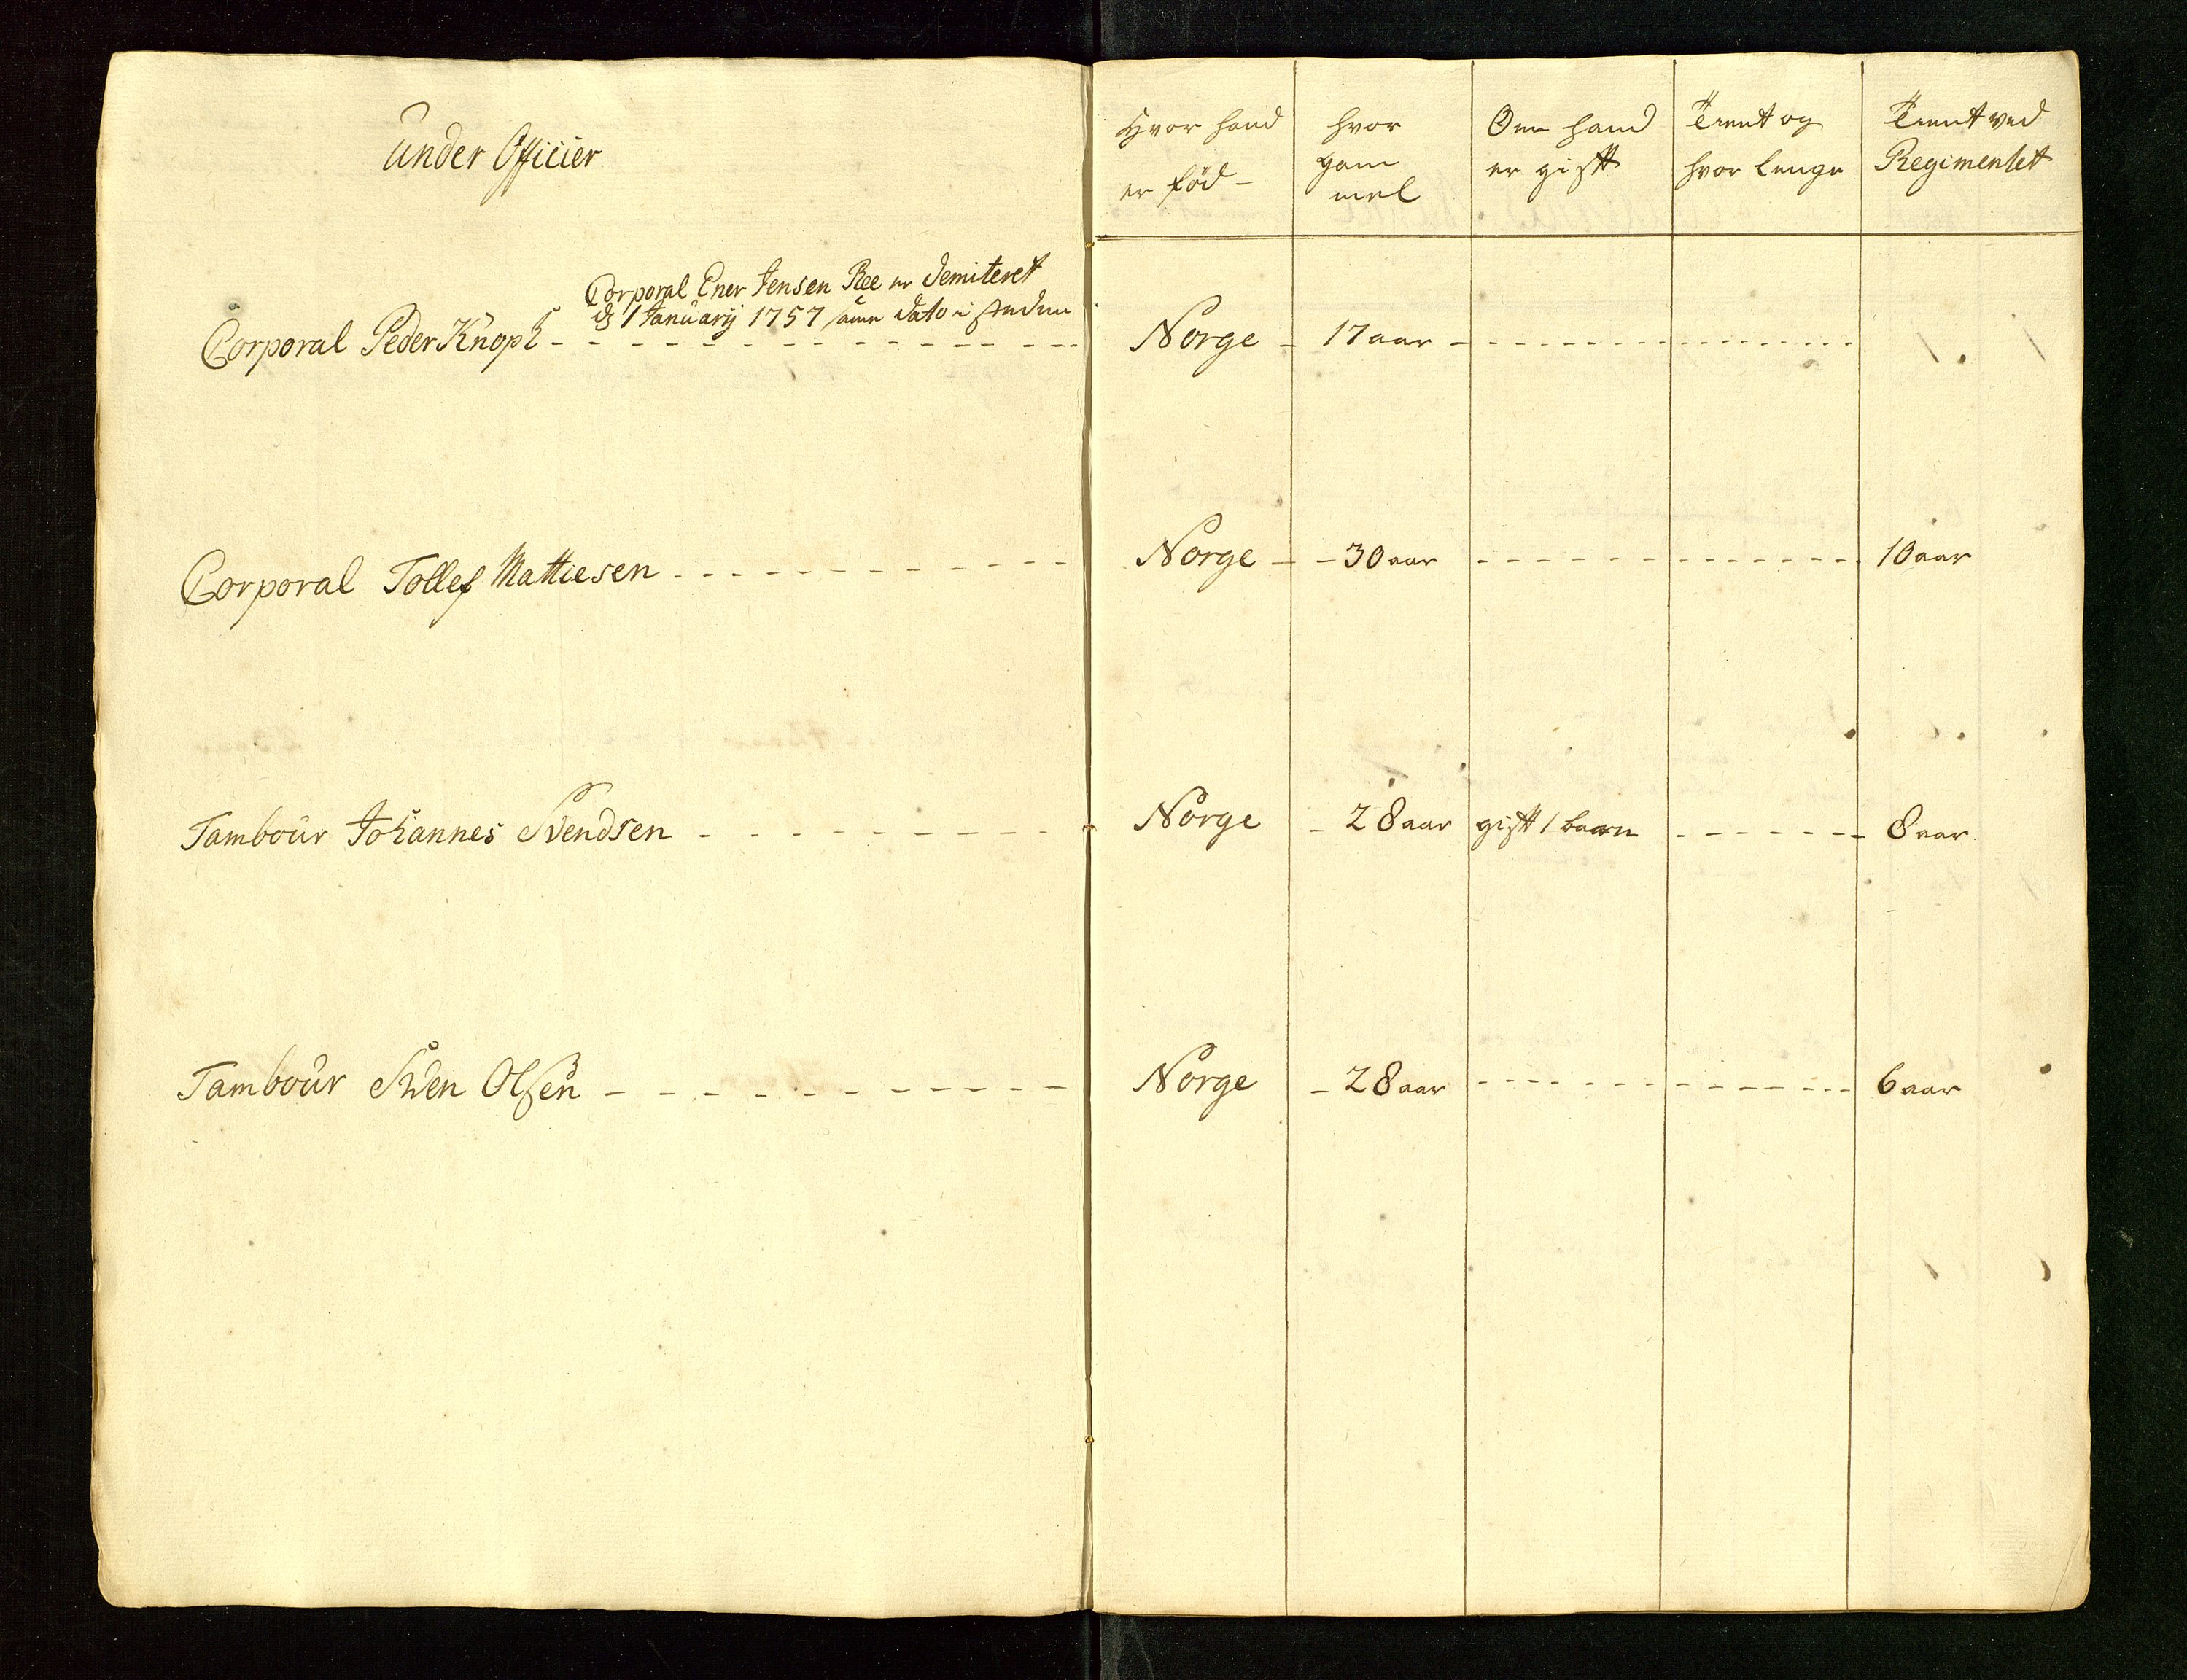 Under Officier
Corporal Ener Jensen Ree er Demiteret
d 1 Januarij 1757 same dato i steden
Corporal Peder Knoph
Corporal Tollef Mattiesen
Tambour Johannes Svendsen
Tambour Swen Olsen
Hvor hand
er föd
hvor
gam
mel
Om hand
er gift
Tient og
hvor lenge
Tient ved
Regimentet
Norge - 17 aar
Norge - 30 aar 10 aar
Norge - 28 aar gift 1 barn 8 aar
Norge - 28 aar 6 aar